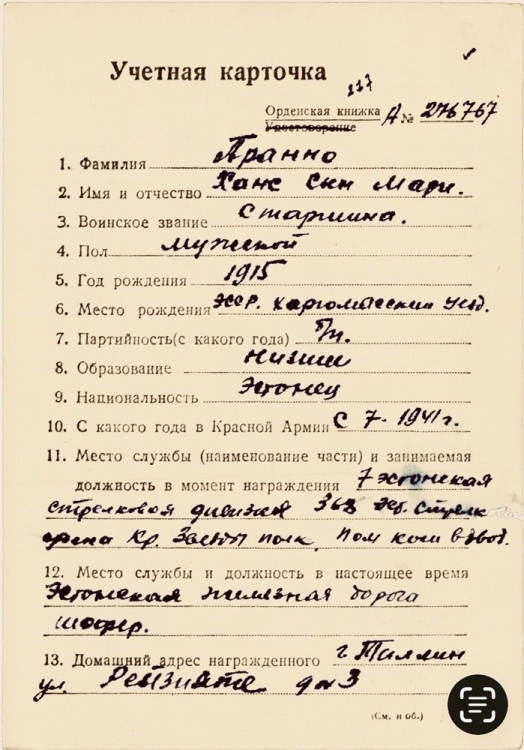 Учетная карточка
Орденская книжка А № 276767
Удостоверение
1. Фамилия Пранно
2. Имя и отчество Ханс сын Мари.
3. Воинское звание Старшина.
4. Пол мужской
5. Год рождения 1915
6. Место рождения
7. Партийность(с какого года) б/п.
8. Образование низшее
9. Национальность Эстонец
10. С какого года в Красной Армии С 7-1941 г.
11. Место службы (наименование части) и занимаемая
должность в момент награждения 7 Эстонская
стрелковая дивизия Эст. стрелк
Кр. Звезды полк, пом ком взвод.
12. Место службы и должность в настоящее время
Эстонская железная дорога
шофер.
13. Домашний адрес награжденного г Таллин
ул.
(См. н об.)